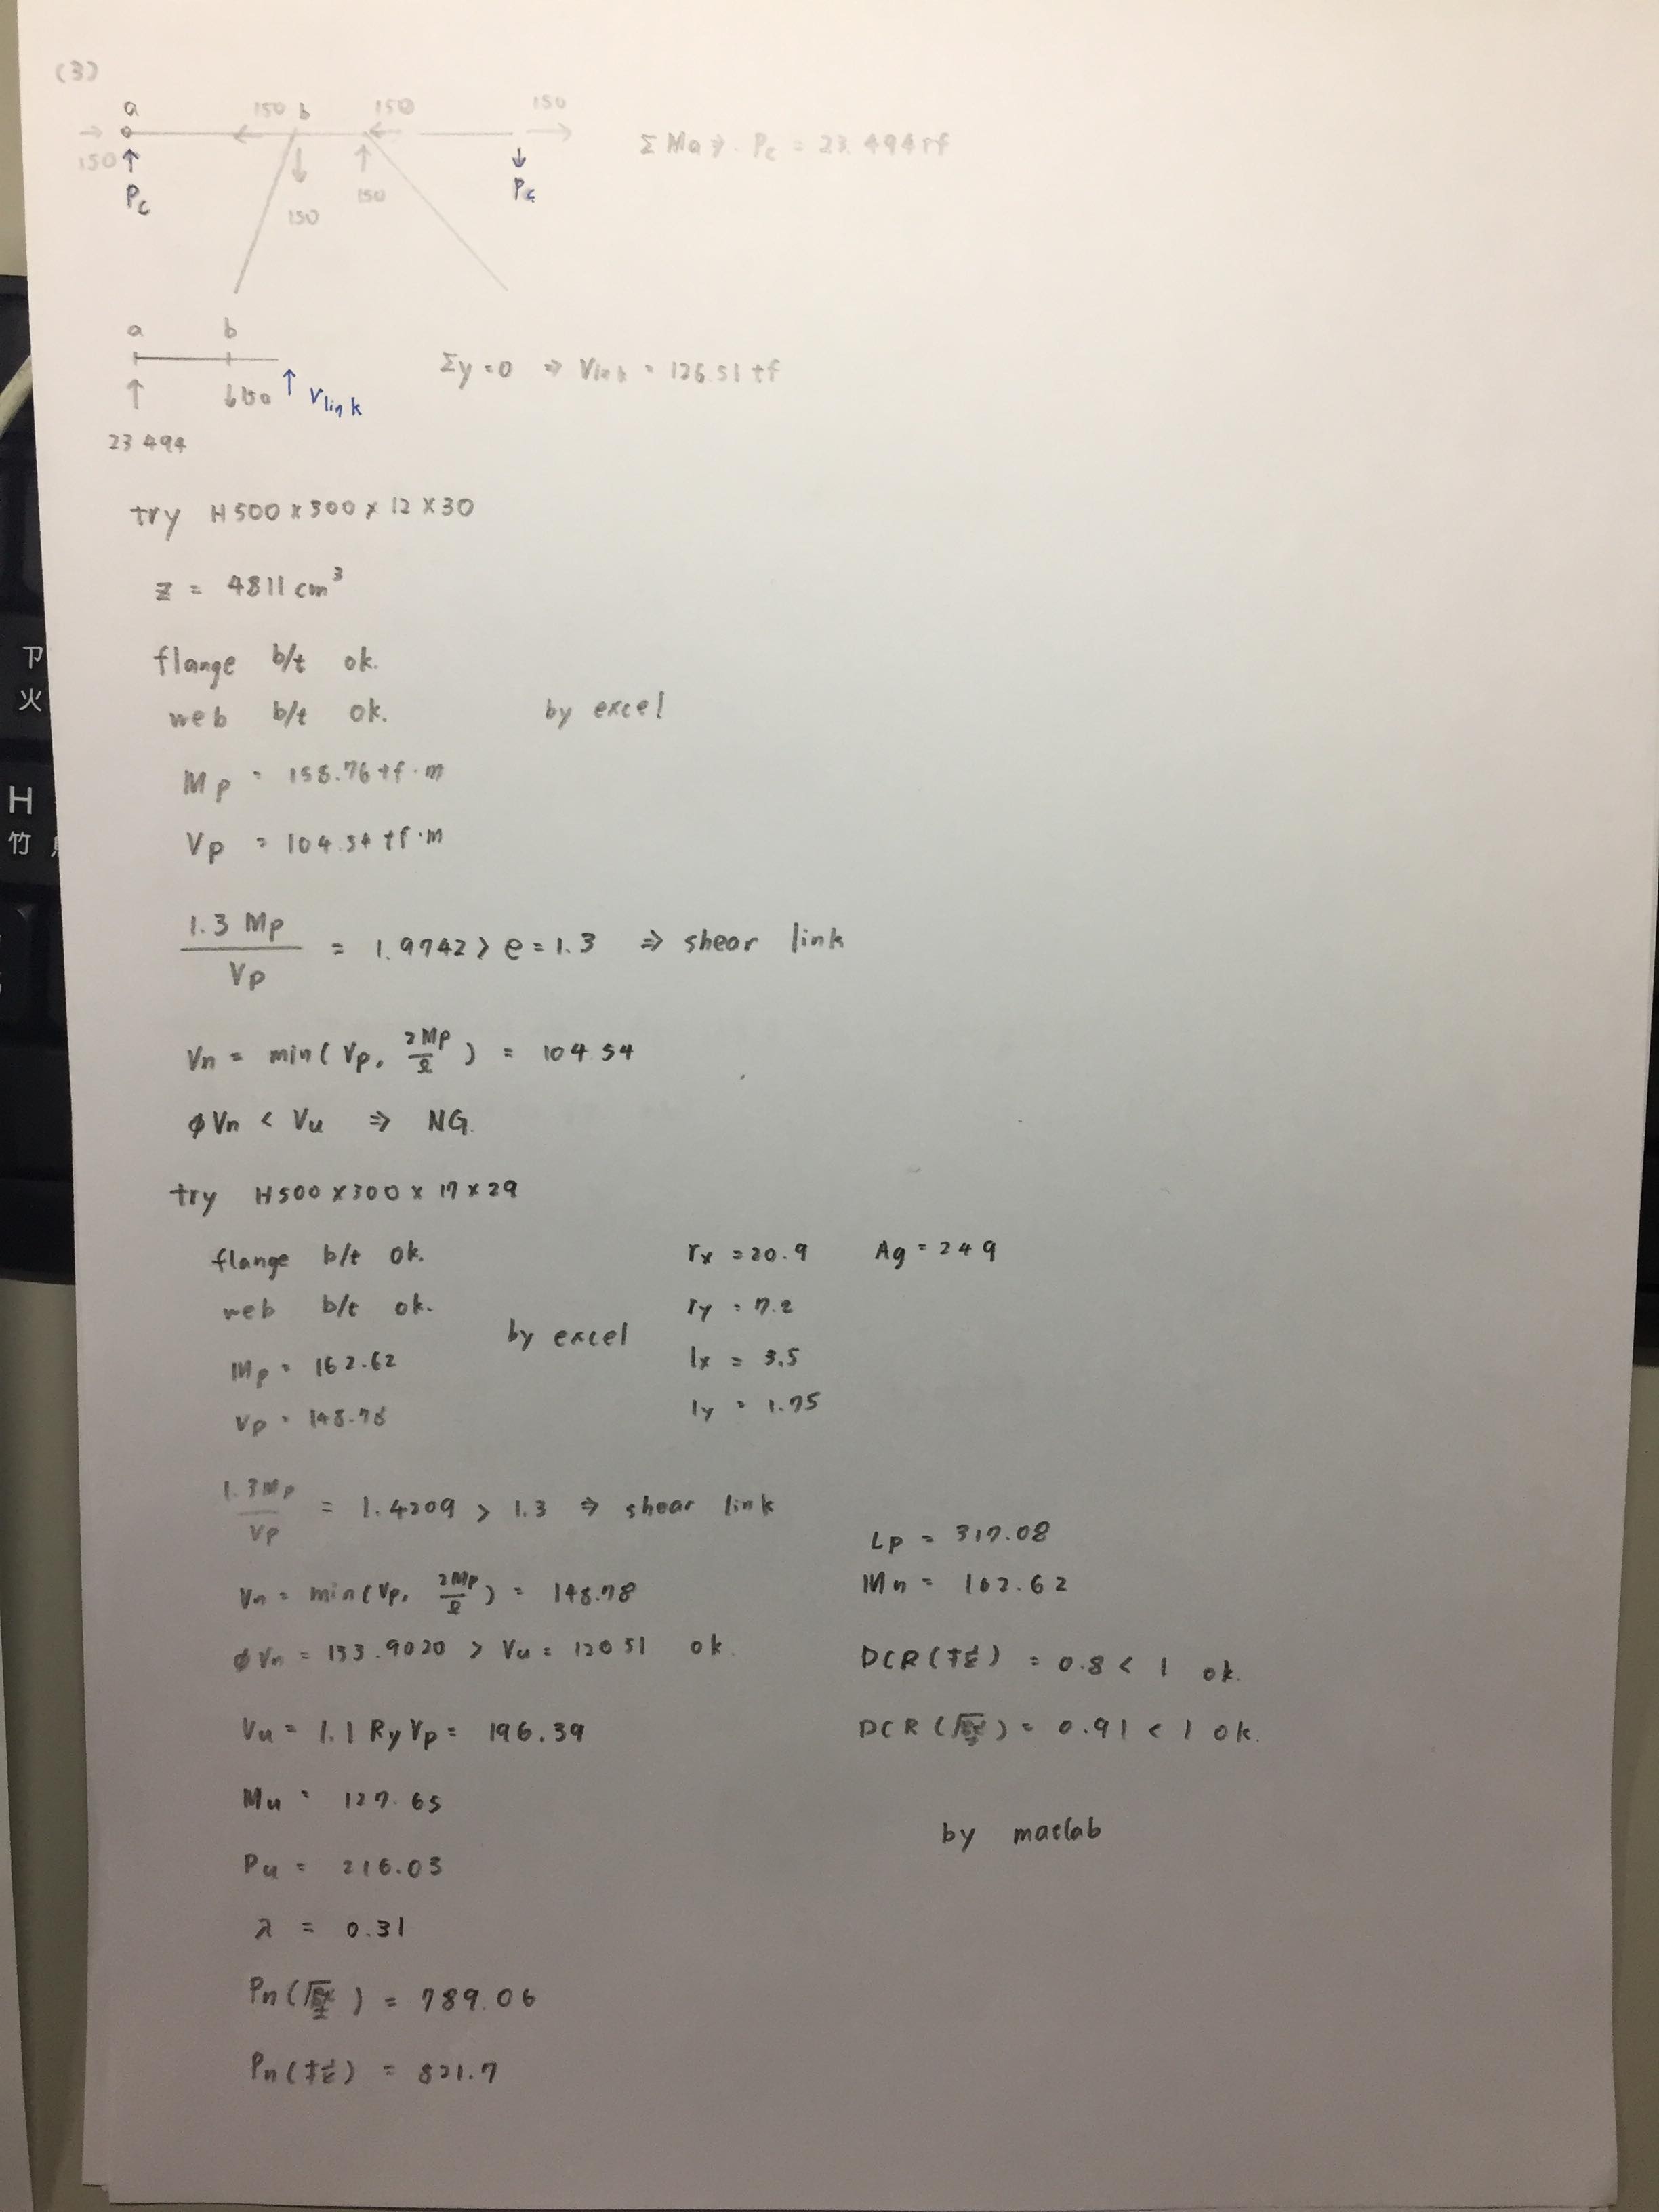 (3)
a 150 b 150 150
150 Pc 150 150 Pc
Σ Ma ⇒ Pc = 23.494 tf
a b
23.494 150 Vlink
Σy = 0 ⇒ Vlink = 126.51 tf
try H500 x 300 x 12 x 30
z = 4811 cm³
flange b/t ok.
web b/t ok. by excel
Mp = 158.76 tf·m
Vp = 104.54 tf·m
1.3 Mp / Vp = 1.9742 > e = 1.3 ⇒ shear link
Vn = min( Vp, 2Mp/e ) = 104.54
φVn < Vu ⇒ NG.
try H500 x 300 x 17 x 29
flange b/t ok.
web b/t ok.
by excel
Mp = 162.62
Vp = 148.78
rx = 20.9 Ag = 249
ry = 7.2
lx = 3.5
ly = 1.75
1.3Mp / Vp = 1.4209 > 1.3 ⇒ shear link
Vn = min( Vp, 2Mp/e ) = 148.78
φVn = 133.9020 > Vu = 126.51 ok.
Vu = 1.1 Ry Vp = 196.39
Mu = 127.65
Pu = 216.03
λ = 0.31
Pn ( ) = 789.06
Pn ( ) = 821.7
Lp = 317.08
Mn = 162.62
DCR ( ) = 0.8 < 1 ok.
DCR ( ) = 0.91 < 1 ok.
by matlab
卩
火
H
竹